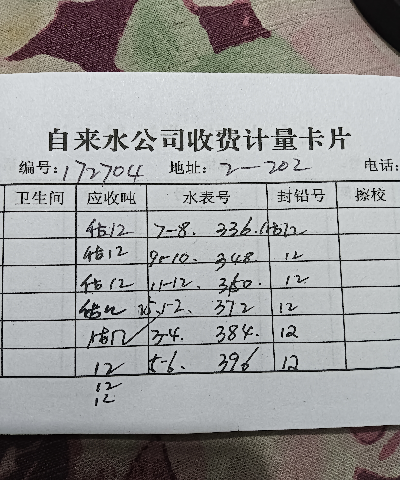 自来水公司收费计量卡片
编号:172704 地址:2-202 电话:
卫生间 应收吨 水表号 封铅号 擦校
估12 7-8. 336. 估12
估12 9-10. 348 12
估12 11-12 360. 12
估12 25.1-2. 372 12
估12 3-4. 384. 12
12 5-6 396 12
12
12